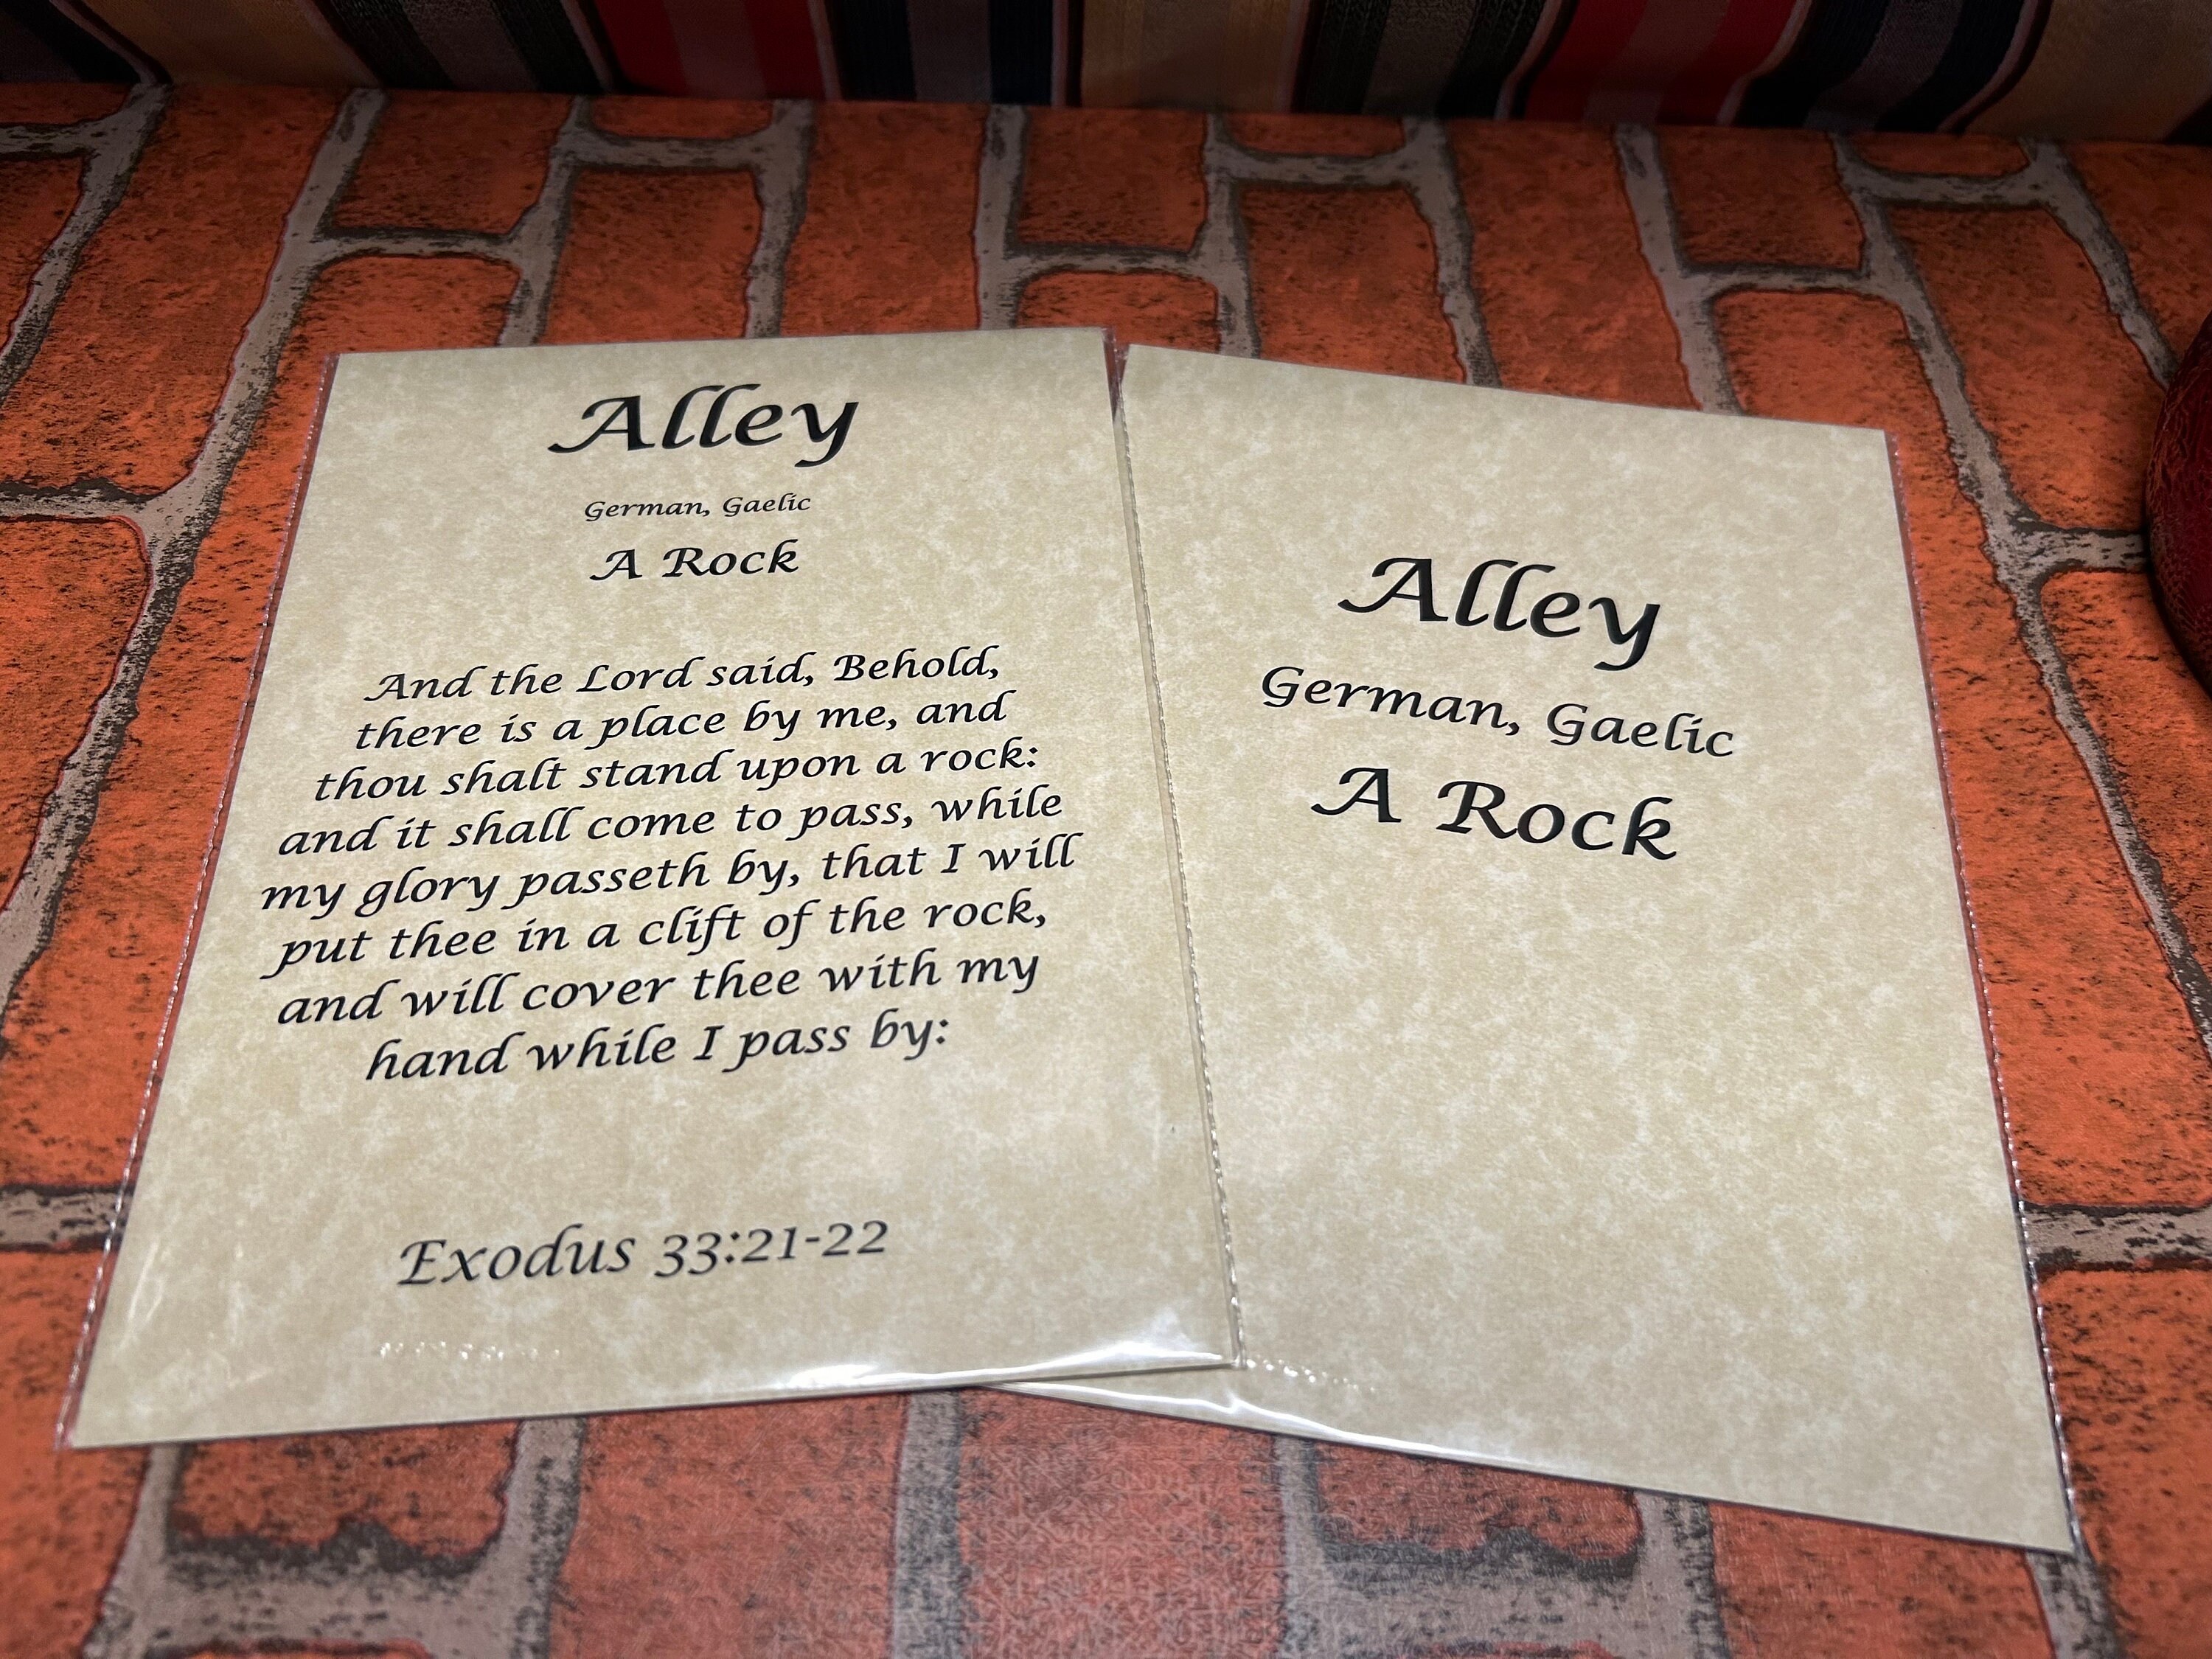 Alley
German, Gaelic
A Rock
And the Lord said, Behold,
there is a place by me, and
thou shalt stand upon a rock:
and it shall come to pass, while
my glory passeth by, that I will
put thee in a clift of the rock,
and will cover thee with my
hand while I pass by:
Exodus 33:21-22
Alley
German, Gaelic
A Rock